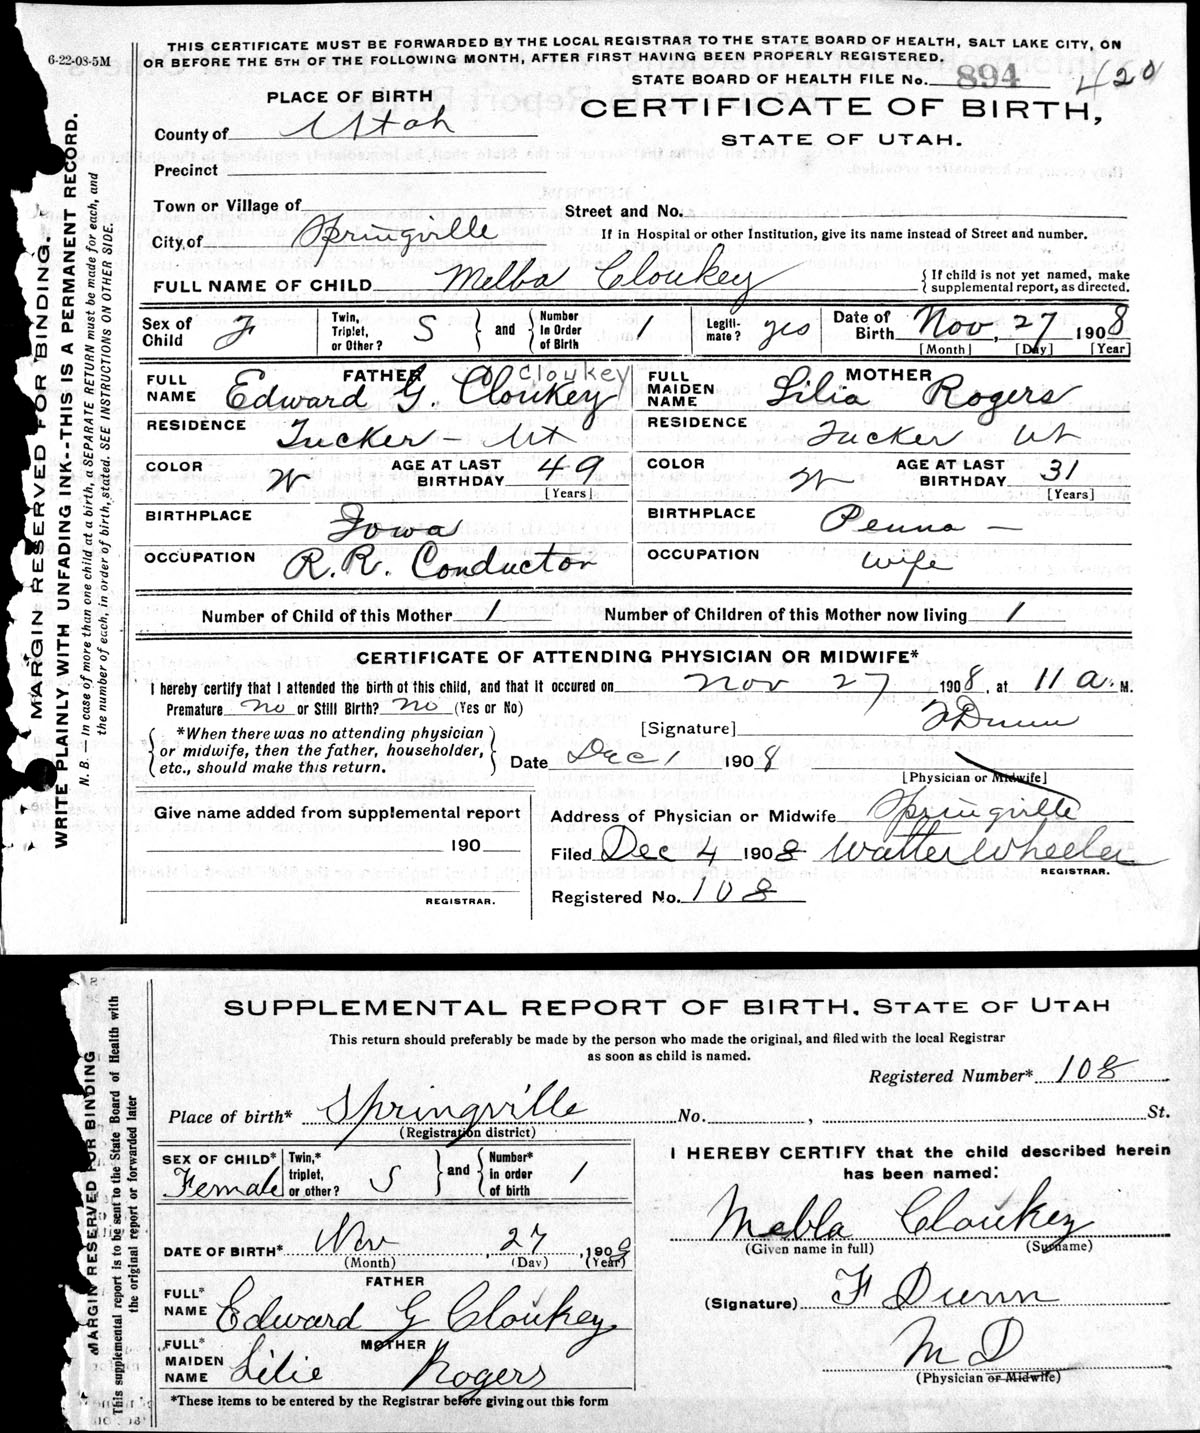 6-22-08-5M
THIS CERTIFICATE MUST BE FORWARDED BY THE LOCAL REGISTRAR TO THE STATE BOARD OF HEALTH, SALT LAKE CITY, ON
OR BEFORE THE 5TH OF THE FOLLOWING MONTH, AFTER FIRST HAVING BEEN PROPERLY REGISTERED.
STATE BOARD OF HEALTH FILE No. 894 420
PLACE OF BIRTH
CERTIFICATE OF BIRTH,
County of Utah
STATE OF UTAH.
Precinct
Town or Village of
Street and No.
City of Springville
If in Hospital or other Institution, give its name instead of Street and number.
FULL NAME OF CHILD Melba Cloukey
{ If child is not yet named, make
supplemental report, as directed.
Sex of Child F Twin, Triplet, or Other? S } and { Number In Order of Birth 1 Legiti- mate? yes Date of Birth Nov, 27 1908
[Month] [Day] [Year]
FATHER Cloukey
FULL NAME Edward G. Cloukey
MOTHER
FULL MAIDEN NAME Lilia Rogers
RESIDENCE Tucker - Ut
RESIDENCE Tucker Ut
COLOR W AGE AT LAST BIRTHDAY 49 [Years]
COLOR W AGE AT LAST BIRTHDAY 31 [Years]
BIRTHPLACE Iowa
BIRTHPLACE Penna -
OCCUPATION R.R. Conductor
OCCUPATION Wife
Number of Child of this Mother 1 Number of Children of this Mother now living 1
CERTIFICATE OF ATTENDING PHYSICIAN OR MIDWIFE*
I hereby certify that I attended the birth of this child, and that it occured on Nov 27 1908, at 11 a. M.
Premature No or Still Birth? No (Yes or No)
*When there was no attending physician
or midwife, then the father, householder,
etc., should make this return.
[Signature] F Dunn
Date Dec 1 1908
[Physician or Midwife]
Give name added from supplemental report
190
REGISTRAR.
Address of Physician or Midwife Springville
Filed Dec 4 1908 Walter Wheeler
REGISTRAR.
Registered No. 108
MARGIN RESERVED FOR BINDING.
WRITE PLAINLY WITH UNFADING INK--THIS IS A PERMANENT RECORD.
N. B. — In case of more than one child at a birth, a SEPARATE RETURN must be made for each, and
the number of each, in order of birth, stated. SEE INSTRUCTIONS ON OTHER SIDE.
SUPPLEMENTAL REPORT OF BIRTH. STATE OF UTAH
This return should preferably be made by the person who made the original, and filed with the local Registrar
as soon as child is named.
Registered Number* 108
Place of birth* Springville No. , St.
(Registration district)
SEX OF CHILD* Female Twin,* triplet, or other? S } and { Number* in order of birth 1
DATE OF BIRTH* Nov , 27 , 1908
(Month) (Day) (Year)
FATHER
FULL* NAME Edward G Cloukey
MOTHER
FULL* MAIDEN NAME Lilie Rogers
*These items to be entered by the Registrar before giving out this form
I HEREBY CERTIFY that the child described herein
has been named:
Mebla Cloukey
(Given name in full) (Surname)
(Signature) F Dunn
M D
(Physician or Midwife)
MARGIN RESERVED FOR BINDING
This supplemental report is to be sent to the State Board of Health with
the original report or forwarded later